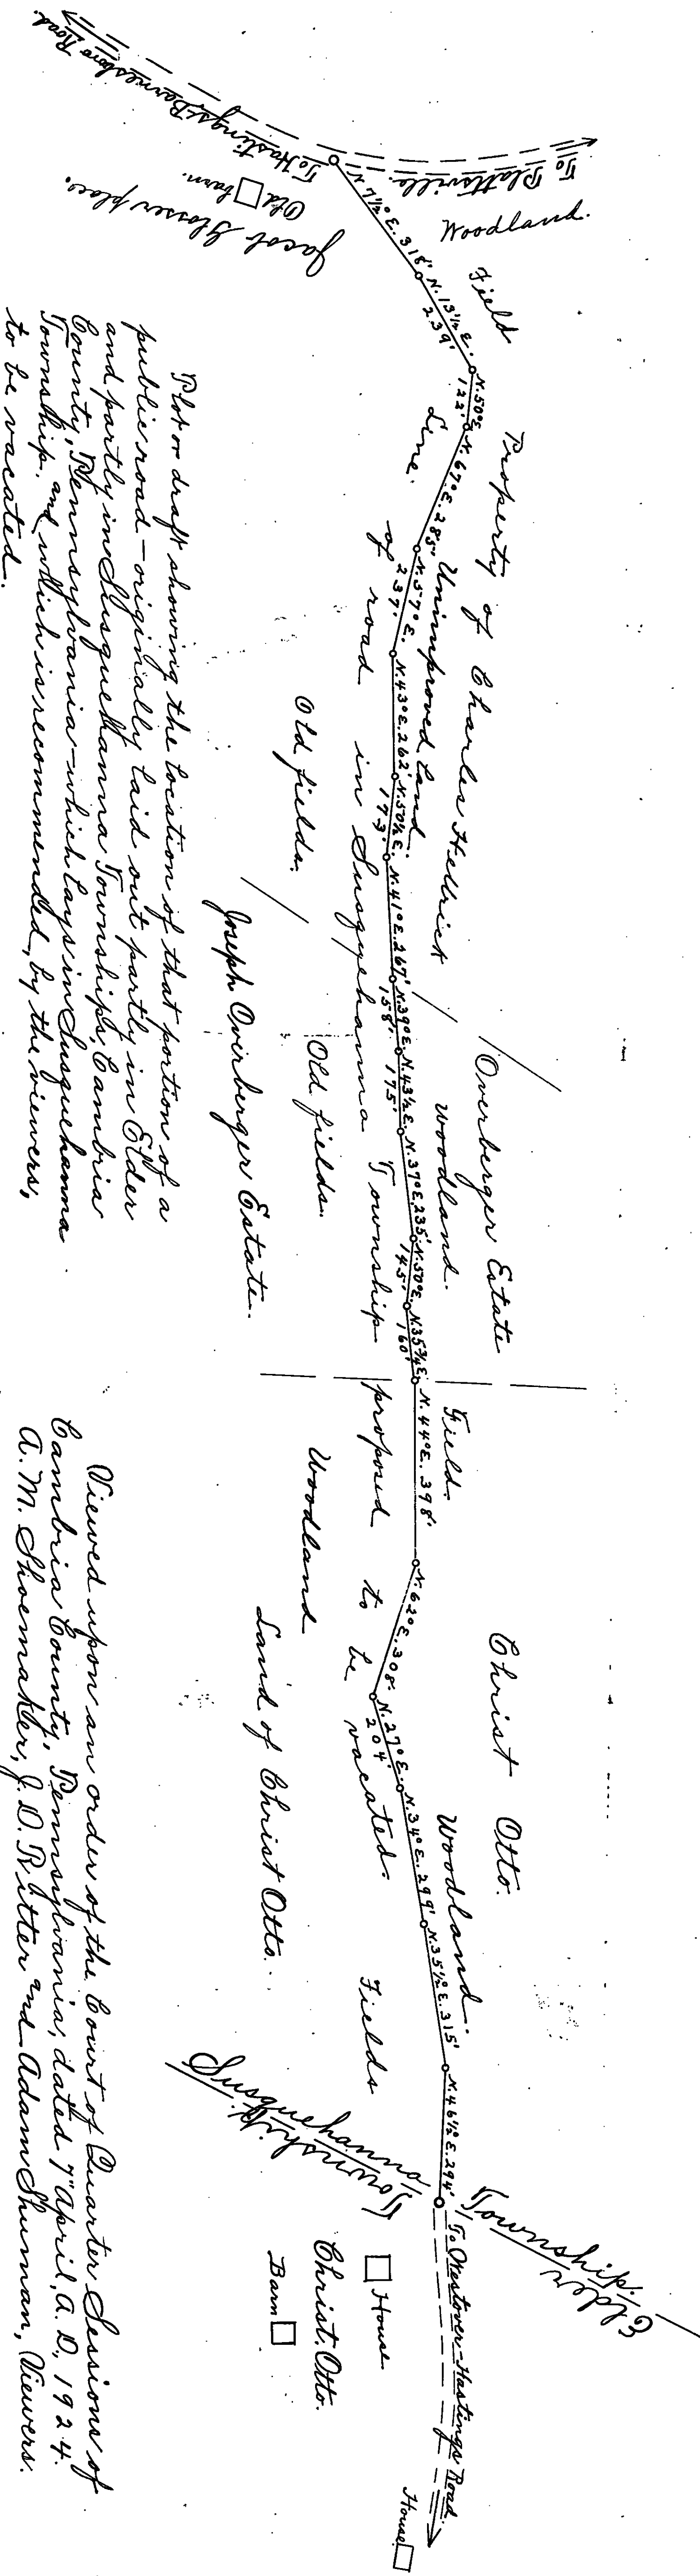 To Hastings & Barnesboro Road.
To Plattsville.
Woodland.
Old barn.
Jacob Glosser place.
Field
N. 7½° E. 318'.
N. 13½ E.
239'
N. 50° E.
122'
N. 67° E. 285'
N. 57° E.
237'.
N. 43° E. 262'
N. 50½ E.
173'.
N. 41° E. 267'
N. 39° E.
158'
N. 43½ E.
175'
N. 37° E. 235'
N. 50° E.
145'
N. 35¾ E.
160'
N. 44° E. 398'
N. 62° E. 308'
N. 27° E.
204'
N. 34° E. 299'
N. 35½° E. 315'
N. 46½° E. 294'
Property of Charles Hellrick
Unimproved Land.
Overberger Estate
Woodland.
Field.
Christ Otto.
Woodland.
Line of road in Susquehanna Township proposed to be vacated.
Old fields.
Old fields.
Joseph Overberger Estate.
Woodland
Land of Christ Otto.
Fields
Susquehanna
Township
Elder
Township.
To Westover-Hastings Road.
House
Christ. Otto.
Barn
House
Plot or draft showing the location of that portion of a
public road - originally laid out partly in Elder
and partly in Susquehanna Townships, Cambria
County, Pennsylvania - which lays in Susquehanna
Township, and which is recommended, by the viewers,
to be vacated.
Viewed upon an order of the Court of Quarter Sessions of
Cambria County, Pennsylvania, dated 7" April, A. D., 1924.
A. M. Shoemaker, J. D. Ritter and Adam Shuman, Viewers.